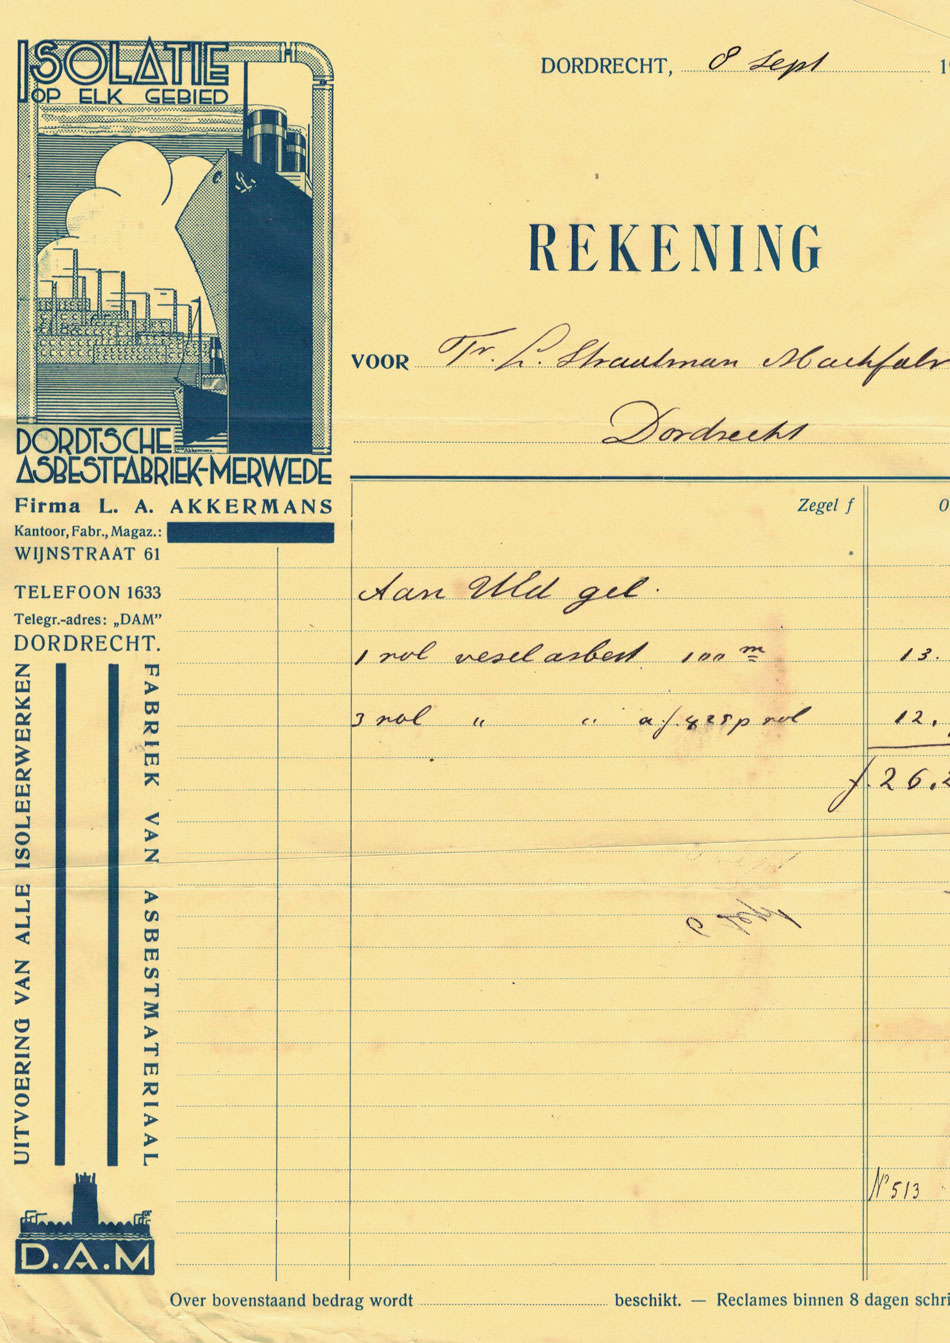 ISOLATIE
OP ELK GEBIED
DORDRECHT, 8 Sept 19
REKENING
VOOR Fr. L. Straatman Machfabr
Dordrecht
DORDTSCHE
ASBESTFABRIEK-MERWEDE
Firma L. A. AKKERMANS
Kantoor, Fabr., Magaz.:
WIJNSTRAAT 61
TELEFOON 1633
Telegr.-adres: „DAM”
DORDRECHT.
UITVOERING VAN ALLE ISOLEERWERKEN
FABRIEK VAN ASBESTMATERIAAL
D.A.M
Zegel f
Aan UEd gel.
1 rol vesel asbest 100 m 13.
3 rol " " a f. 4.25 p rol 12.
f. 26.2
No 513
Over bovenstaand bedrag wordt beschikt. — Reclames binnen 8 dagen schri